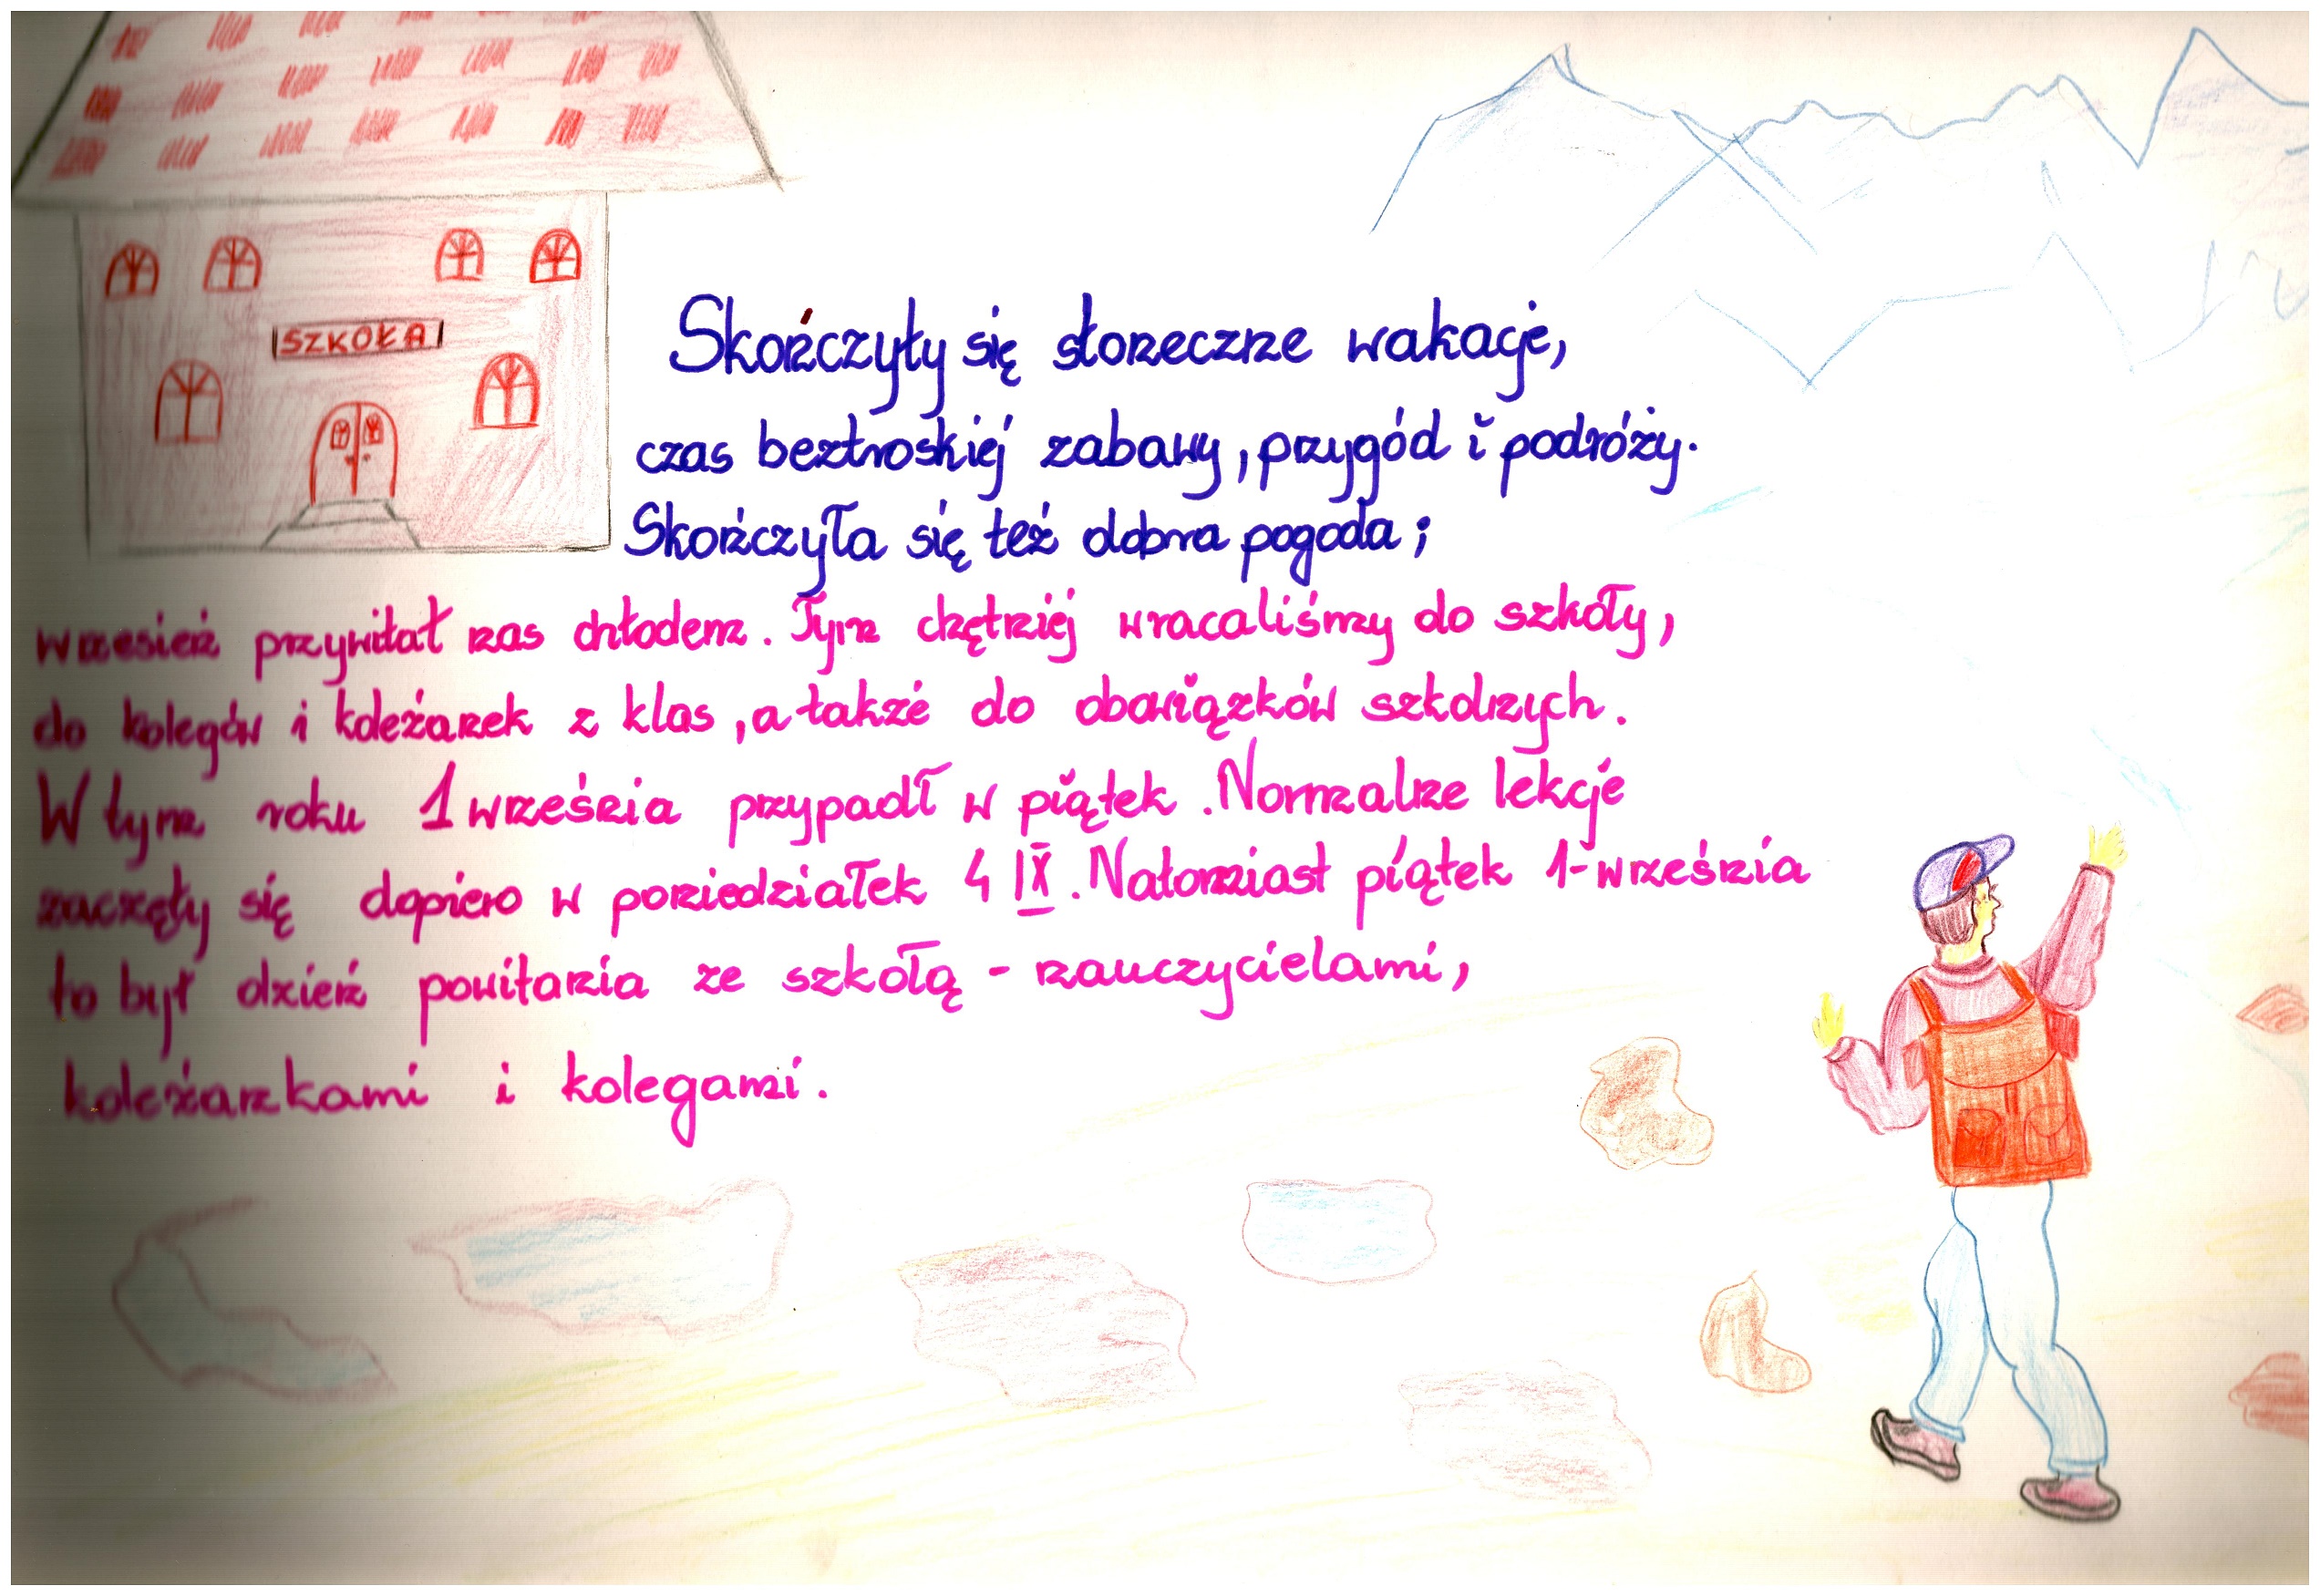 SZKOŁA
Skończyły się słoneczne wakacje,
czas beztroskiej zabawy, przygód i podróży.
Skończyła się też dobra pogoda;
wrzesień przywitał nas chłodem. Tym chętniej wracaliśmy do szkoły,
do kolegów i koleżanek z klas, a także do obowiązków szkolnych.
W tym roku 1 września przypadł w piątek. Normalne lekcje
zaczęły się dopiero w poniedziałek 4 IX. Natomiast piątek 1-września
to był dzień powitania ze szkołą - nauczycielami,
koleżankami i kolegami.